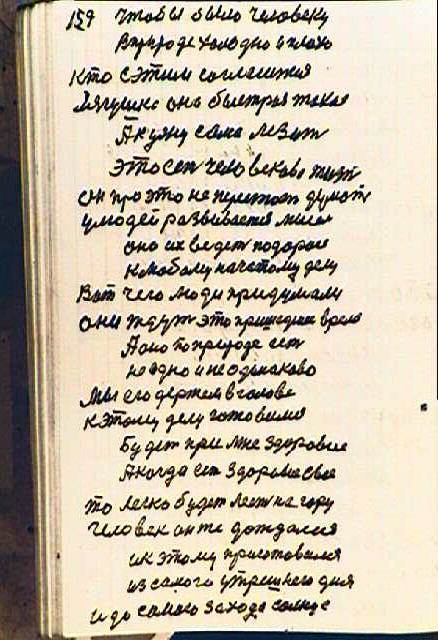 159 чтобы было человеку
В природе холодно и плохо
Кто с этим согласится
Лягушка она быстрая такая
А к ужу сама лезит
Это сет человеково
Он про это не перестает думат
У людей развивается мысл
она их ведет по дороге
К любому начатому делу
Вот чего люди придумали
они ждут это пришедшее время
А оно по природе ест
но одно и не одинаково
Мы его держем в голове
К этому делу готовимся
Будет при мне здоровие
А когда ест здоровие свое
то легко будет лест на гору
Человек он те дождался
и к этому приготовился
из самого утрешнего дня
и до самого захода солнце